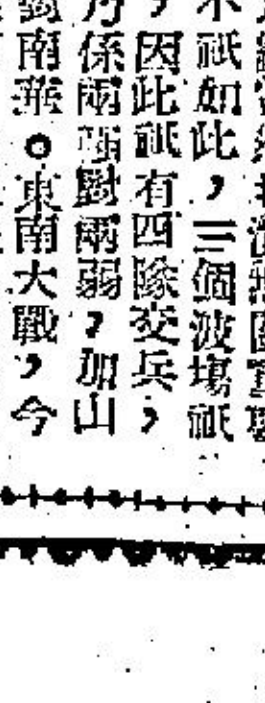 不祇如此，三個波塲祇
，因此祇有四隊交兵，
乃係兩强對兩弱，加山
對南華。東南大戰，今